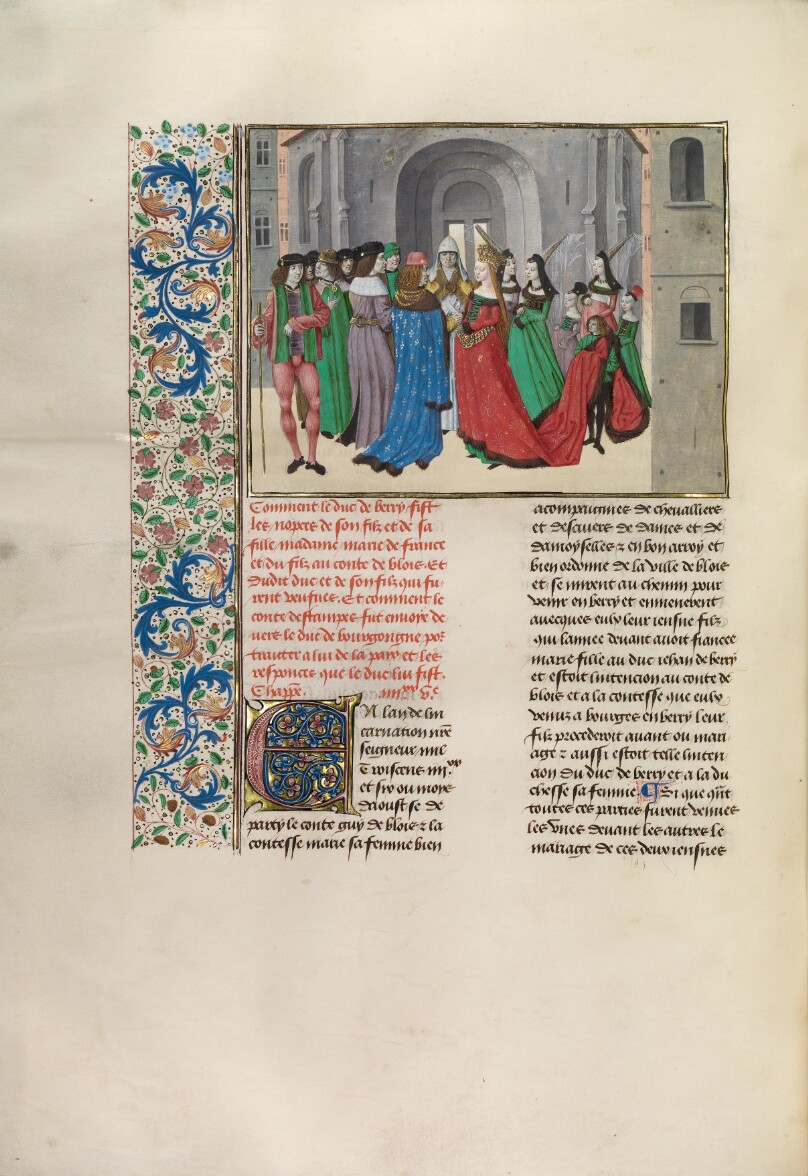 Comment le duc de berry fist
les nopces de son filz et de sa
fille madame marie de france
et du filz au conte de blois. Et
dudit duc et de son filz qui fu
rent veufues. Et comment le
conte destampes fut enuoie de
uers le duc de bourgongne por
traitter a lui de la paix et les
responces que le duc lui fist.
Chappe. iiiixx ve
En lan de lin
carnation nre
seigneur mil
Troiscens iiii.xx
et six ou mois
daoust se de
party le conte guy de blois z la
contesse marie sa femme bien
acompaignies de cheualliers
et descuiers de dames et de
damoyselles z en bon arroy et
bien ordonne de la ville de blois
et se mirent au chemin pour
venir en berry et enmenerent
auecques eulx leur ieusne filz
qui lannee deuant auoit fiancee
marie fille au duc iehan de berry
et estoit lintencion au conte de
blois et a la contesse que eulx
venus a bourges en berry leur
filz procederoit auant ou mari
aige z aussi estoit telle linten
cion du duc de berry et a la du
chesse sa femme. Si que qnt
toutes ces parties furent venues
les vnes deuant les autres le
mariage de ces deux ieusnes